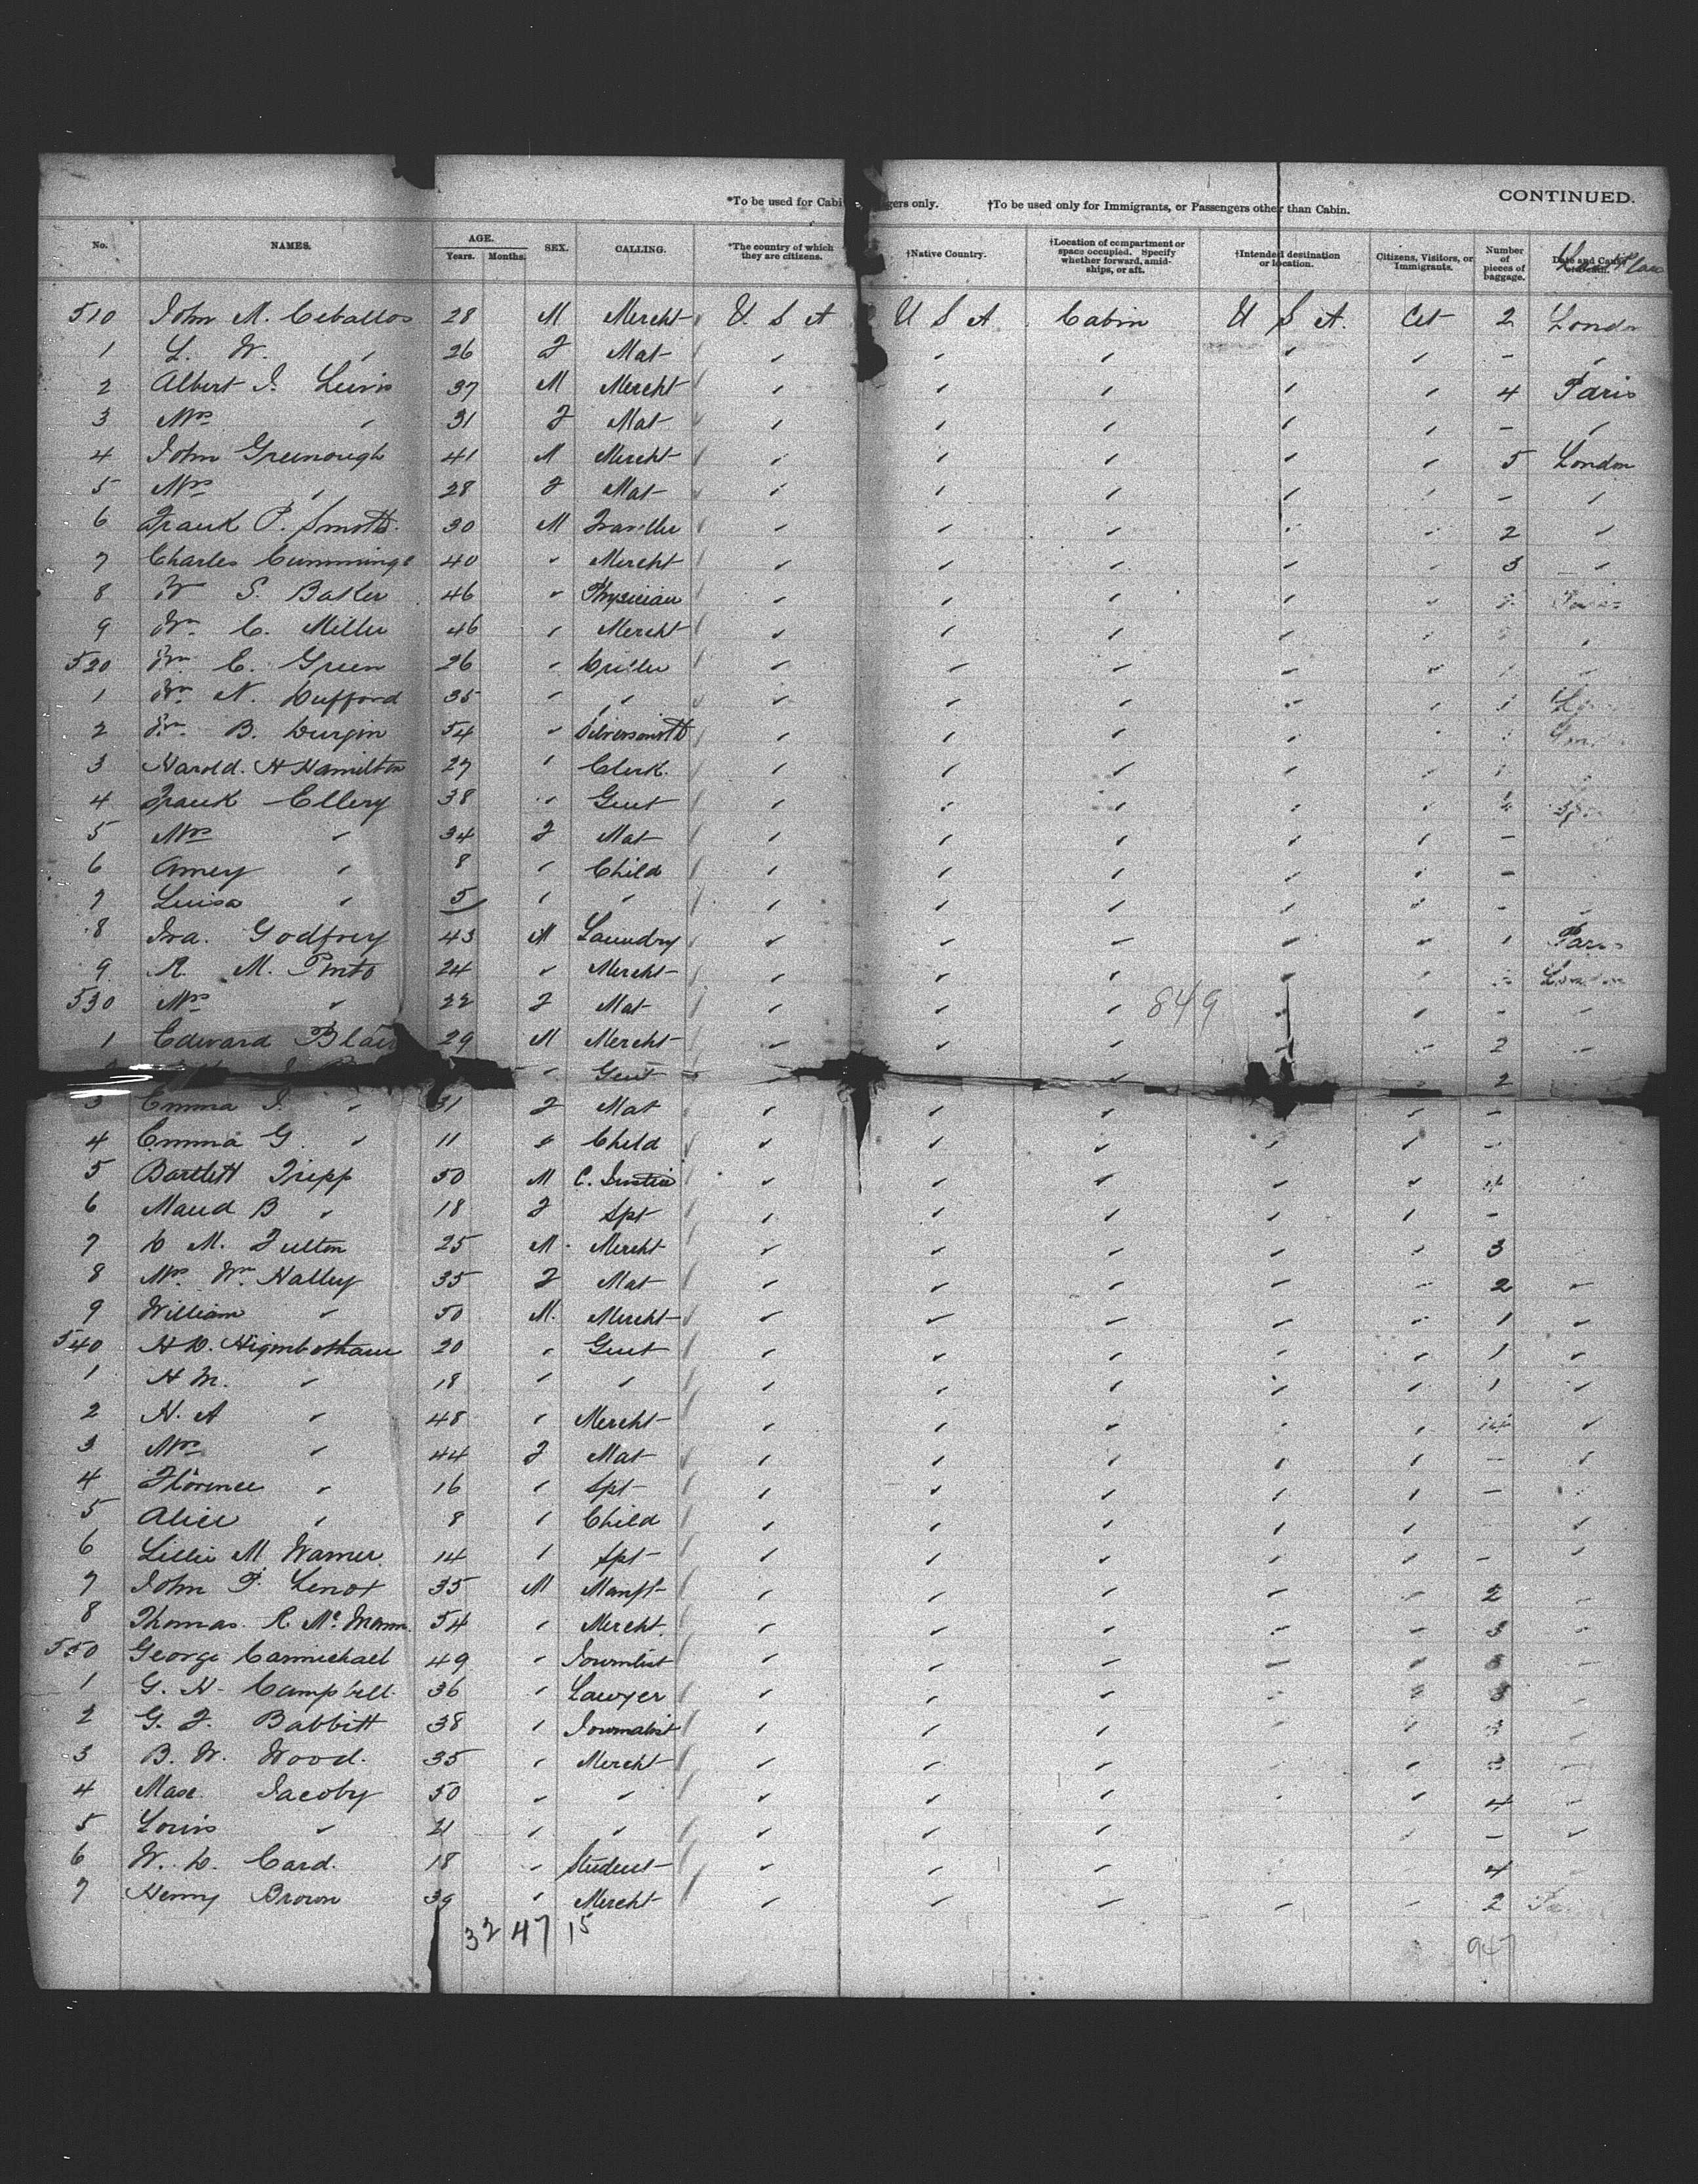 CONTINUED.
*To be used for Cabi gers only. †To be used only for Immigrants, or Passengers other than Cabin.
No. NAMES. AGE. Years. Months. SEX. CALLING. *The country of which they are citizens. †Native Country. †Location of compartment or space occupied. Specify whether forward, amidships, or aft. †Intended destination or location. Citizens, Visitors, or Immigrants. Number of pieces of baggage. Date and Cause
510 John M. Ceballos 28 M Mercht U. S A U S A Cabin U S A. Cit 2 London
1 L. W. " 26 F Mat " " " " " - "
2 Albert J. Lewis 37 M Mercht " " " " " 4 Paris
3 Mrs " 31 F Mat " " " " " - "
4 John Greenough 41 M Mercht " " " " " 5 London
5 Mrs " 28 F Mat " " " " " - "
6 Frank P. Smith. 30 M Traveller " " " " " 2 "
7 Charles Cummings 40 " Mercht " " " " " 3 "
8 W S. Baker 46 " Physician " " " " " Paris
9 Wm C. Miller 46 " Mercht " " " " "
520 Wm C. Green 26 " " " " " " 1 "
1 Wm N. Dufford 35 " " " " " " " 1
2 Wm B. Durgin 54 " Silversmith " " " " "
3 Harold. H Hamilton 27 " Clerk. " " " " " 1
4 Frank Ellery 38 " Gent " " " " "
5 Mrs " 34 F Mat " " " " " -
6 Amey " 8 " Child " " " " " -
7 Luisa " 5 " " " " " " " - "
8 Ira. Godfrey 43 M Laundry " " " " " 1 Paris
9 R. M. Pinto 24 " Mercht " " " " " London
530 Mrs " 22 F Mat " " " 849 " " - "
1 Edward Blair 29 M Mercht " " " " " 2 "
" Gent " " " 2
3 Emma J. " 31 F Mat " " " " -
4 Emma G. " 11 " Child " " " " " -
5 Bartlett Tripp 50 M C. Justice " " " " " 4
6 Maud B " 18 F Spt " " " " " -
7 D M. Fulton 25 M. Mercht " " " " " 3
8 Mrs. Wm Halley 35 F Mat " " " " " 2 "
9 William " 50 M. Mercht " " " " " 1 "
540 H D. Higinbotham 20 " Gent " " " " " 1 "
1 H M. " 18 " " " " " " " 1 "
2 H. A " 48 " Mercht " " " " " "
3 Mrs " 44 F Mat " " " " " - "
4 Florence " 16 " Spt " " " " " -
5 Alice " 8 " Child " " " " " "
6 Lillie M Warner. 14 " Spt " " " " " - "
7 John P. Lenox 35 M Manft " " " " " 2 "
8 Thomas. R. Mc. Mann. 54 " Mercht. " " " " " 3 "
550 George Carmichael 49 " Journlist " " " " " "
1 G. H. Campbell. 36 " Lawyer " " " " " 3 "
2 G. F. Babbitt 38 " Journalist " " " " " 3 "
3 B. W. Wood. 35 " Mercht " " " " " 3 "
4 Max. Jacoby 50 " " " " " " " 4 "
5 Louis " 21 " " " " " " - "
6 W. D. Card. 18 " Student " " " 4
7 Henry Brown 39 " Mercht " " " " " 2
32 47 15
947